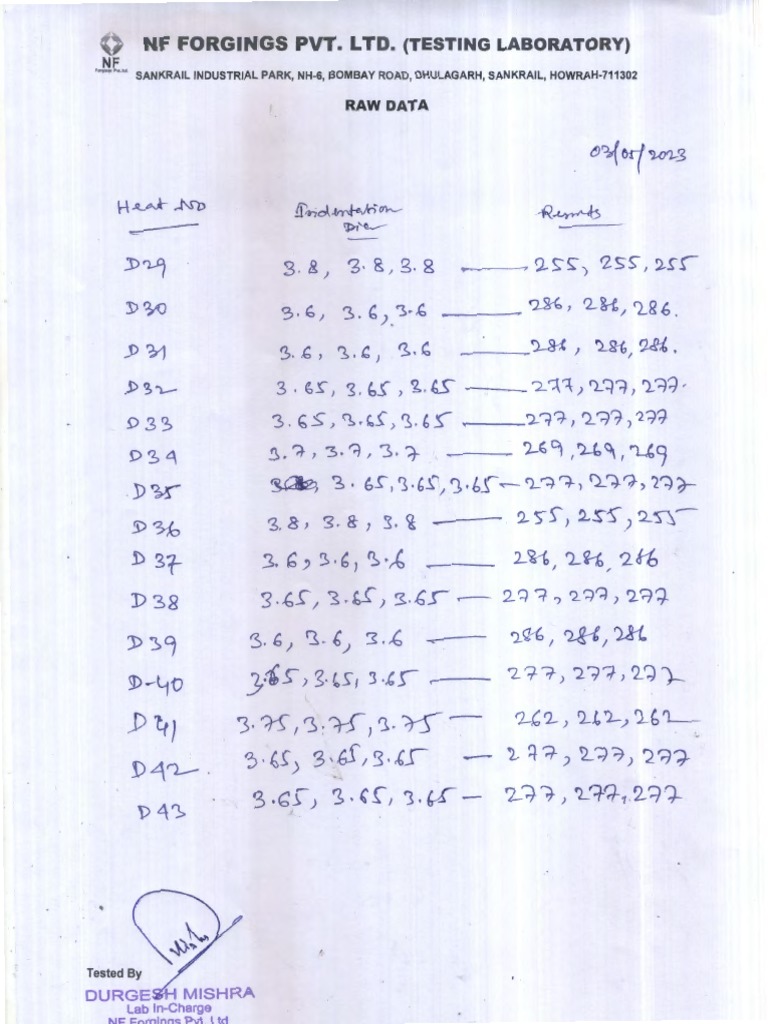 NF FORGINGS PVT. LTD. (TESTING LABORATORY)
NF
Forgings Pvt. Ltd.
SANKRAIL INDUSTRIAL PARK, NH-6, BOMBAY ROAD, DHULAGARH, SANKRAIL, HOWRAH-711302
RAW DATA
03/05/2023
Heat No Indentation Dia Results
D29 3.8, 3.8, 3.8 — 255, 255, 255
D30 3.6, 3.6, 3.6 — 286, 286, 286.
D31 3.6, 3.6, 3.6 — 286, 286, 286.
D32 3.65, 3.65, 3.65 — 277, 277, 277.
D33 3.65, 3.65, 3.65 — 277, 277, 277
D34 3.7, 3.7, 3.7 — 269, 269, 269
D35 3.65, 3.65, 3.65 — 277, 277, 277
D36 3.8, 3.8, 3.8 — 255, 255, 255
D37 3.6, 3.6, 3.6 — 286, 286, 286
D38 3.65, 3.65, 3.65 — 277, 277, 277
D39 3.6, 3.6, 3.6 — 286, 286, 286
D-40 3.65, 3.65, 3.65 — 277, 277, 277
D41 3.75, 3.75, 3.75 — 262, 262, 262
D42 3.65, 3.65, 3.65 — 277, 277, 277
D43 3.65, 3.65, 3.65 — 277, 277, 277
Tested By
DURGESH MISHRA
Lab In-Charge
NF Forgings Pvt. Ltd